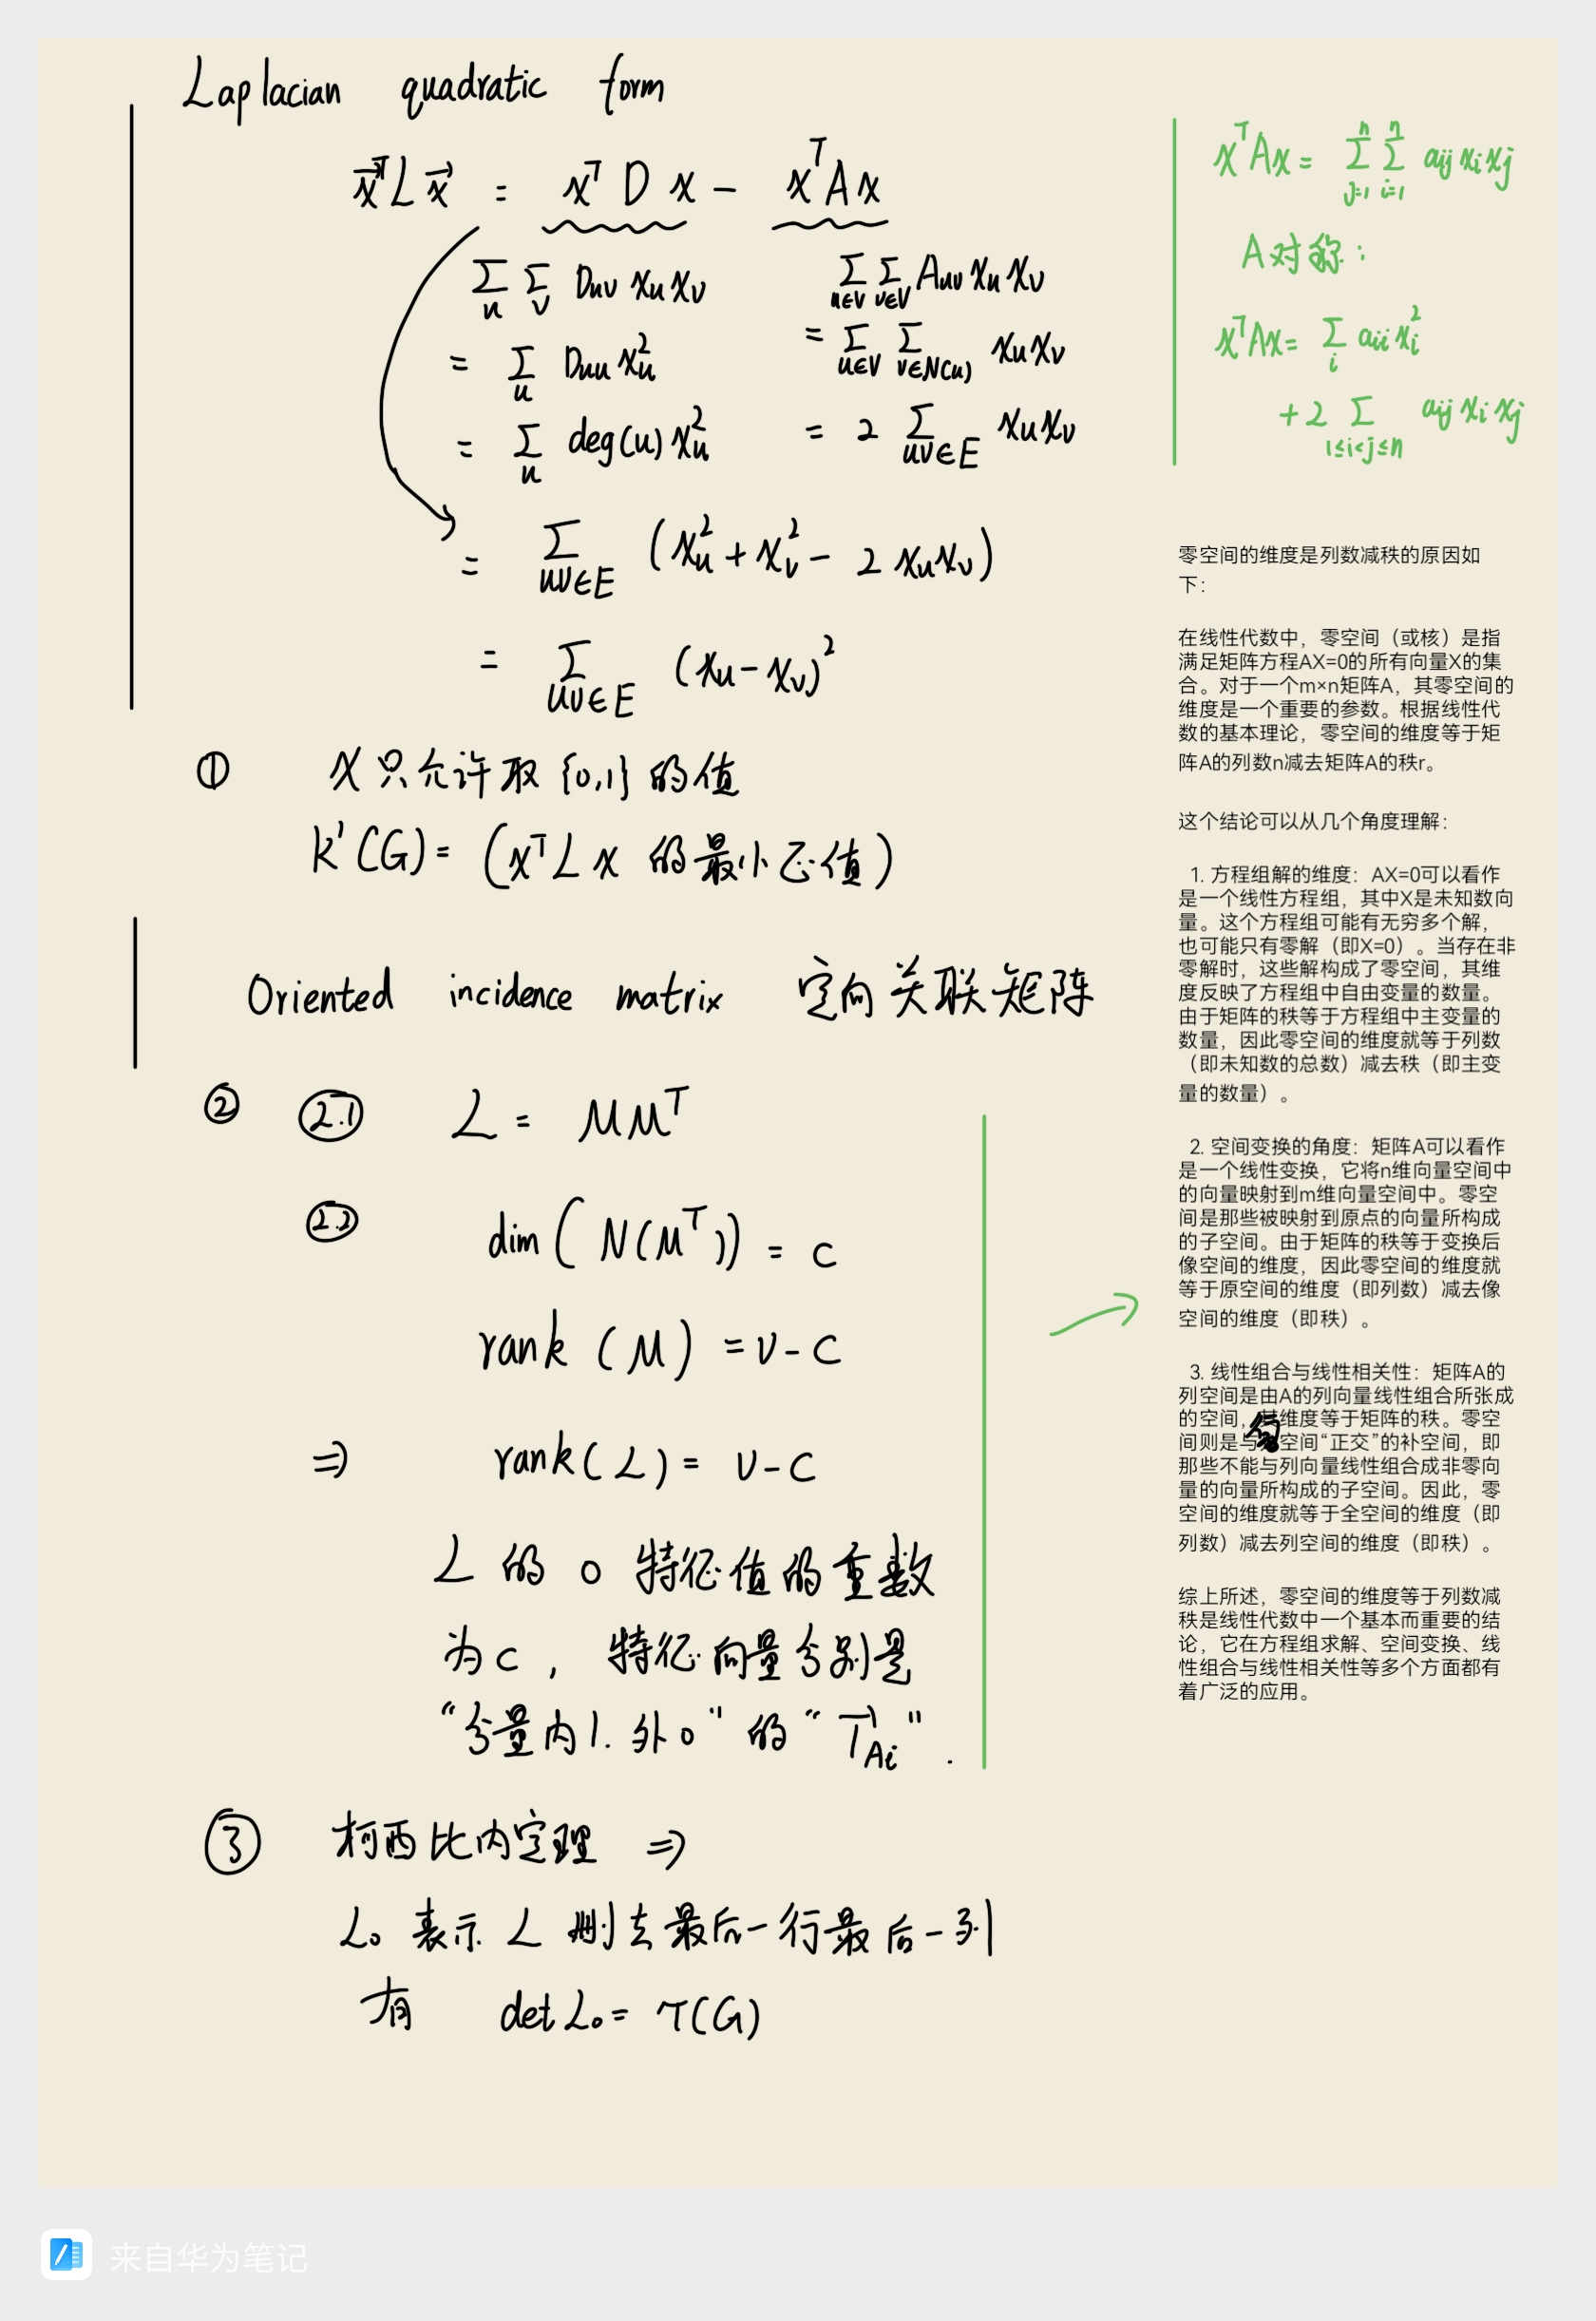 Laplacian quadratic form
x⃗ᵀL x⃗ = xᵀD x - xᵀAx
∑_u ∑_v D_uv x_u x_v
= ∑_u D_uu x_u²
= ∑_u deg(u) x_u²
∑_{u∈V} ∑_{v∈V} A_uv x_u x_v
= ∑_{u∈V} ∑_{v∈N(u)} x_u x_v
= 2 ∑_{uv∈E} x_u x_v
= ∑_{uv∈E} (x_u² + x_v² - 2 x_u x_v)
= ∑_{uv∈E} (x_u - x_v)²
① x只允许取{0,1}的值
k'(G) = (xᵀLx 的最小正值)
Oriented incidence matrix 定向关联矩阵
② 2.1 L = MMᵀ
2.2 dim(N(Mᵀ)) = c
rank(M) = v-c
⇒ rank(L) = v-c
L 的 0 特征值的重数
为c, 特征向量分别是
“分量内1.外0”的“1⃗_{Ai}”.
③ 柯西比内定理 ⇒
L₀ 表示 L 删去最后一行最后一列
有 det L₀ = τ(G)
xᵀAx = ∑_{j=1}^n ∑_{i=1}^n a_ij x_i x_j
A对称:
xᵀAx = ∑_i a_ii x_i²
+ 2 ∑_{1≤i<j≤n} a_ij x_i x_j
零空间的维度是列数减秩的原因如
下：
在线性代数中，零空间（或核）是指
满足矩阵方程AX=0的所有向量X的集
合。对于一个m×n矩阵A，其零空间的
维度是一个重要的参数。根据线性代
数的基本理论，零空间的维度等于矩
阵A的列数n减去矩阵A的秩r。
这个结论可以从几个角度理解：
1. 方程组解的维度：AX=0可以看作
是一个线性方程组，其中X是未知数向
量。这个方程组可能有无穷多个解，
也可能只有零解（即X=0）。当存在非
零解时，这些解构成了零空间，其维
度反映了方程组中自由变量的数量。
由于矩阵的秩等于方程组中主变量的
数量，因此零空间的维度就等于列数
（即未知数的总数）减去秩（即主变
量的数量）。
2. 空间变换的角度：矩阵A可以看作
是一个线性变换，它将n维向量空间中
的向量映射到m维向量空间中。零空
间是那些被映射到原点的向量所构成
的子空间。由于矩阵的秩等于变换后
像空间的维度，因此零空间的维度就
等于原空间的维度（即列数）减去像
空间的维度（即秩）。
3. 线性组合与线性相关性：矩阵A的
列空间是由A的列向量线性组合所张成
的空间，其维度等于矩阵的秩。零空
间则是与空间“正交”的补空间，即
那些不能与列向量线性组合成非零向
量的向量所构成的子空间。因此，零
空间的维度就等于全空间的维度（即
列数）减去列空间的维度（即秩）。
综上所述，零空间的维度等于列数减
秩是线性代数中一个基本而重要的结
论，它在方程组求解、空间变换、线
性组合与线性相关性等多个方面都有
着广泛的应用。
来自华为笔记